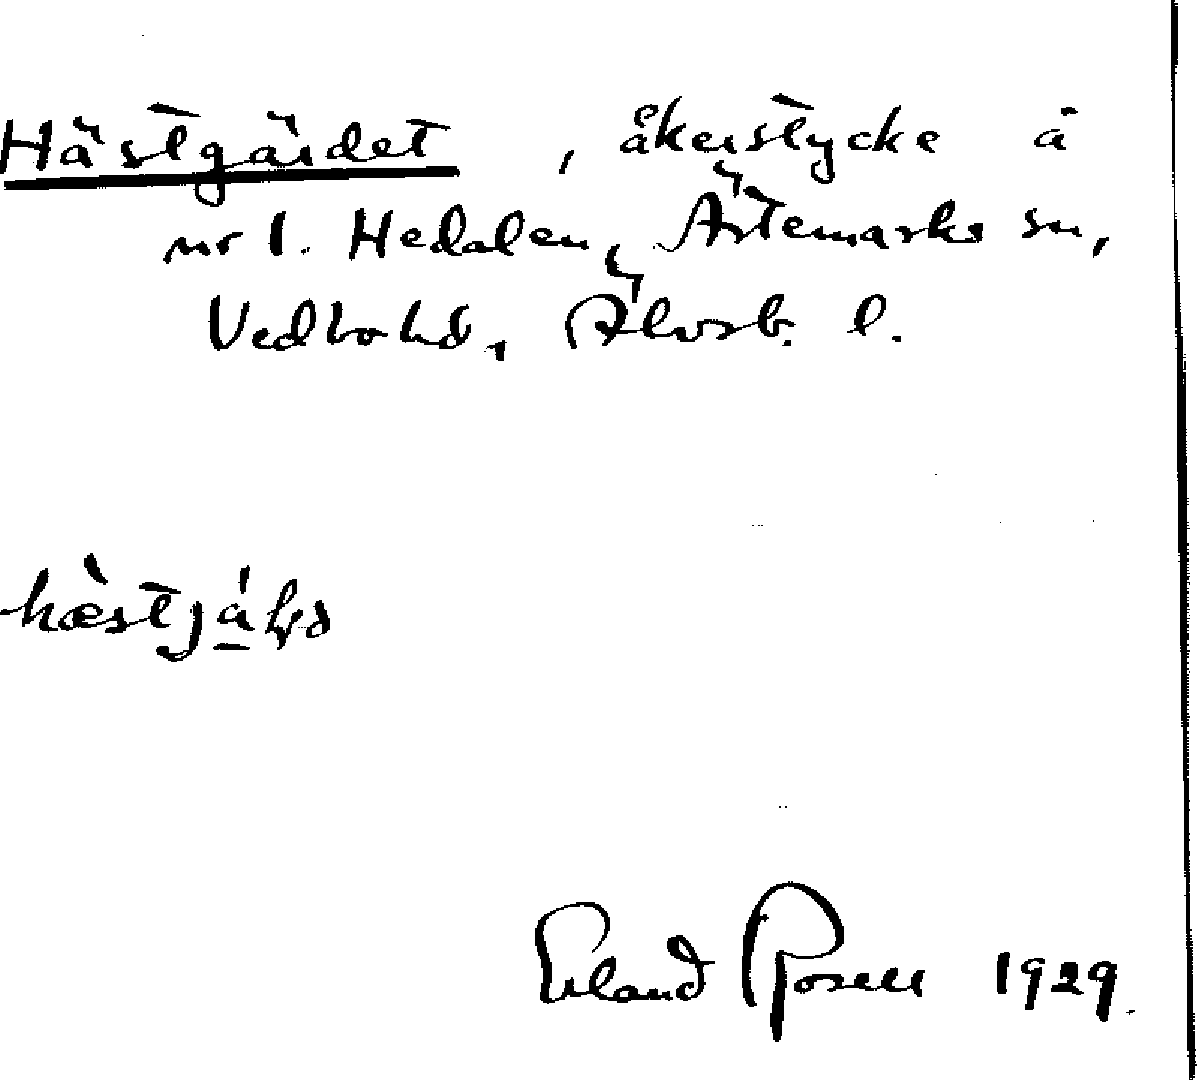 Hästgärdet, åkerstycke å
nr 1. Hedalen, Ärtemarks sn,
Vedbo hd, Älvsb. l.
Erland Rosell 1929.